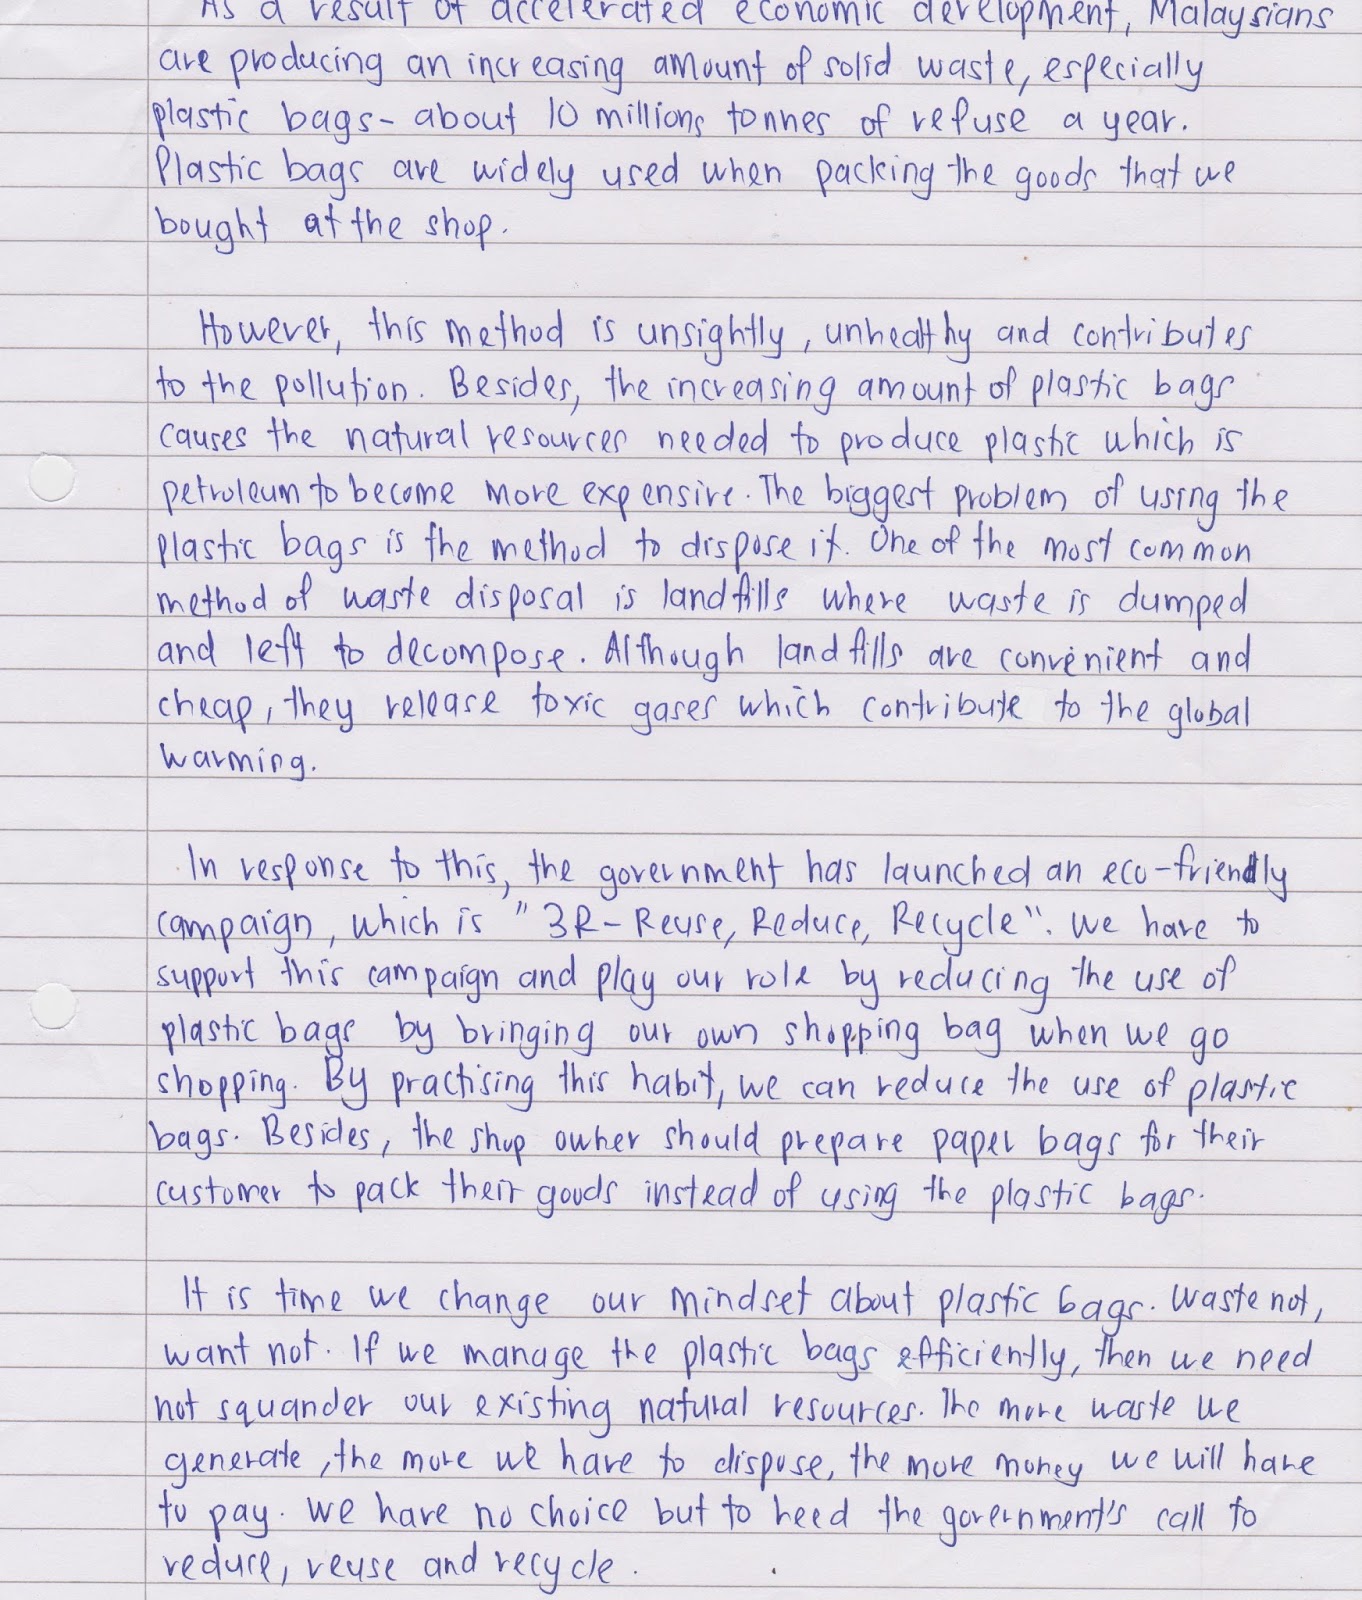 As a result of accelerated economic development, Malaysians
are producing an increasing amount of solid waste, especially
plastic bags - about 10 millions tonnes of refuse a year.
Plastic bags are widely used when packing the goods that we
bought at the shop.
However, this method is unsightly, unhealthy and contributes
to the pollution. Besides, the increasing amount of plastic bags
causes the natural resources needed to produce plastic which is
petroleum to become more expensive. The biggest problem of using the
plastic bags is the method to dispose it. One of the most common
method of waste disposal is landfills where waste is dumped
and left to decompose. Although landfills are convenient and
cheap, they release toxic gases which contribute to the global
warming.
In response to this, the government has launched an eco-friendly
campaign, which is "3R-Reuse, Reduce, Recycle". We have to
support this campaign and play our role by reducing the use of
plastic bags by bringing our own shopping bag when we go
shopping. By practising this habit, we can reduce the use of plastic
bags. Besides, the shop owner should prepare paper bags for their
customer to pack their goods instead of using the plastic bags.
It is time we change our mindset about plastic bags. Waste not,
want not. If we manage the plastic bags efficiently, then we need
not squander our existing natural resources. The more waste we
generate, the more we have to dispose, the more money we will have
to pay. We have no choice but to heed the government's call to
reduce, reuse and recycle.